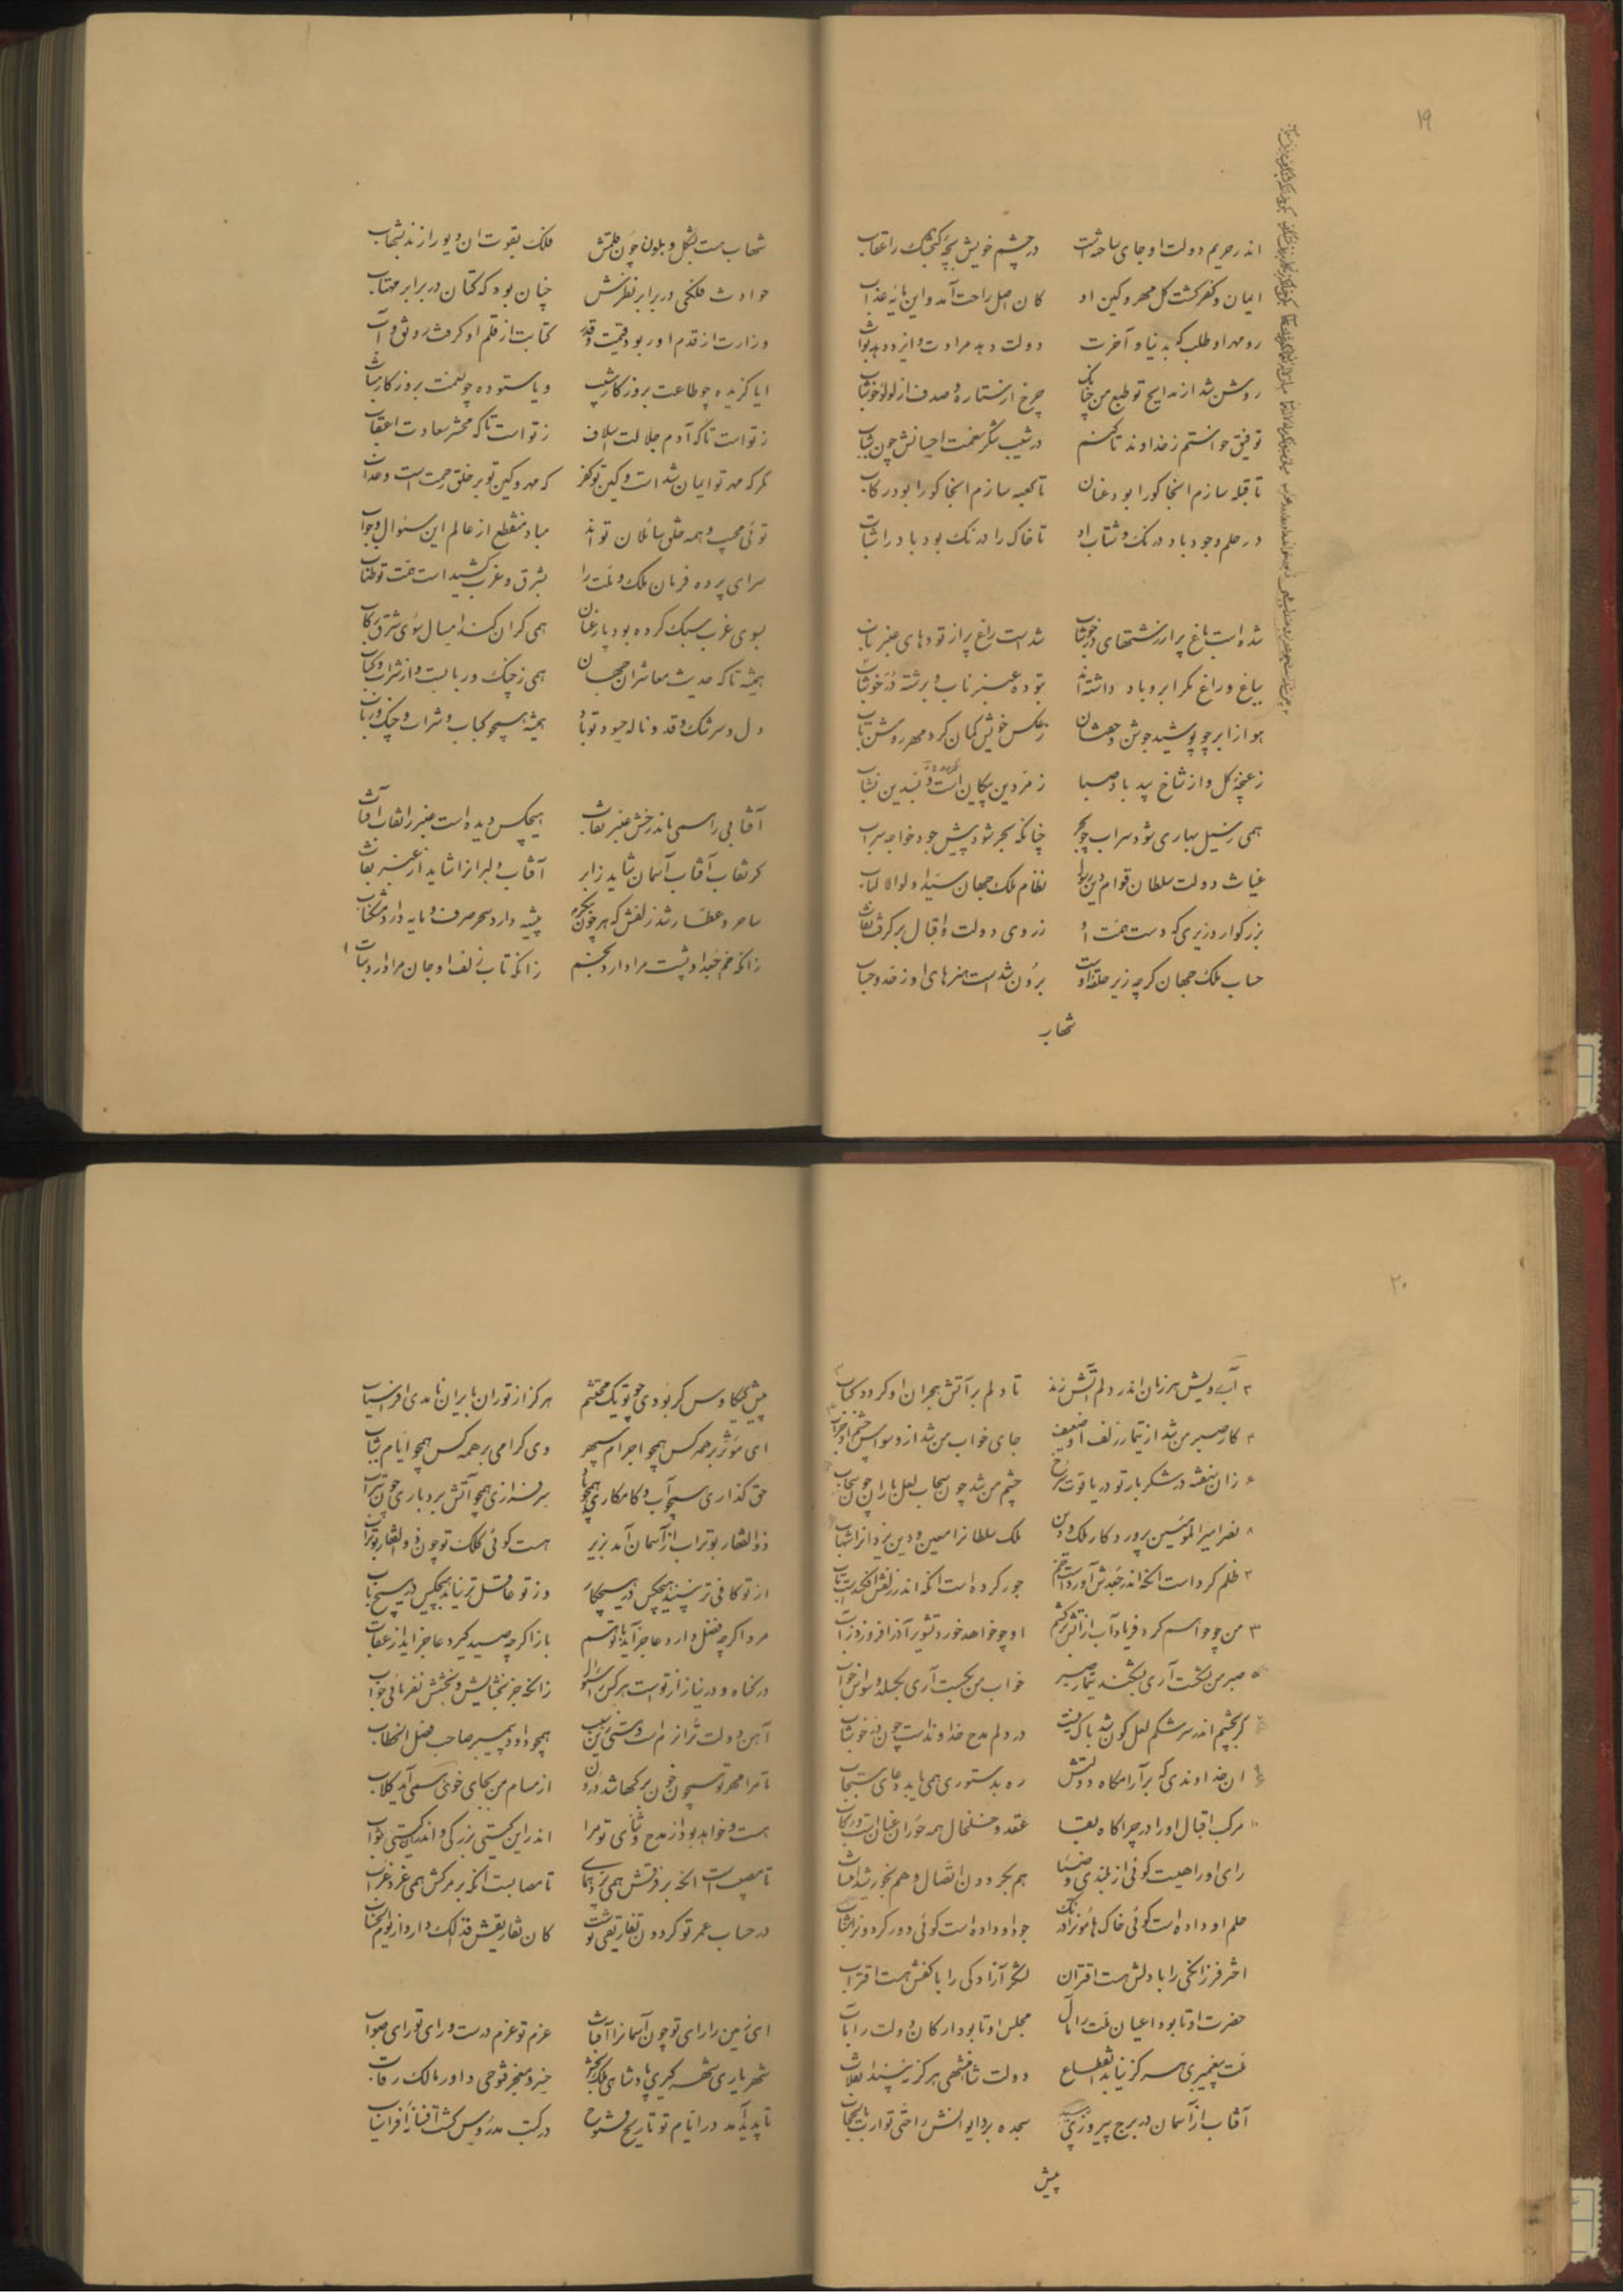 ۱۹
اندر حریم دولت او جای ساخته است در چشم خویش بچه گنجشک را عقاب
ایمان و کفر گشت کل مهر و کین او کان اصل راحت آمد و این مایه عذاب
رو مهر او طلب که بدنیا و آخرت دولت دهد مرادت و ایزد دهد ثواب
روشن شد از مدایح تو طبع من چنانک چرخ از ستاره و صدف از لولو خوشاب
توفیق خواستم ز خداوند تا کنم در شیب شکر نعمت احسانش چون شباب
تا قبله سازم آنجا کورا بود عنان تا کعبه سازم آنجا کورا بود رکاب
در حلم و جود باد درنگ و شتاب او تا خاک را درنگ بود باد را شتاب
شده است باغ پر از رشتهای در خوشاب شده است راغ پر از تودهای عنبر ناب
بباغ و راغ مگر ابر و باد داشته‌اند بتوده عنبر ناب و برشته در خوشاب
هوا از ابر چو پوشید جوشن و خفتان ز عکس خویش کمان کرد مهر روشن تاب
ز غنچه گل و از شاخ بید باد صبا زمردین پیکان است و بسدین نشاب
همی ز سیل بهاری شود سراب چو بحر چنانکه بحر شود پیش جود خواجه سراب
غیاث دولت سلطان قوام دین رسول نظام ملک جهان سید اولوالالباب
بزرگوار وزیری که دست همت او ز روی دولت و اقبال بر گرفت نقاب
حساب ملک جهان گرچه زیر حلقه اوست برون شده است هنرهای او ز حد و حساب
شهاب
شهاب هست بشکل و بلون چون قلمش فلک بقوت آن دیو را زند بشهاب
حوادث فلکی در برابر نظرش چنان بود که کتان در برابر مهتاب
وزارت از قدم او ربود قیمت و قدر کتابت از قلم او گرفت رونق و آب
ایا گزیده چو طاعت بروزگار مشیب و یا ستوده چو نعمت بروزگار شباب
ز تو است تا که آدم جلالت اسلاف ز تو است تا که محشر سعادت اعقاب
مگر که مهر تو ایمان شد است و کین تو کفر که مهر و کین تو بر خلق رحمت است و عذاب
توئی مجیب و همه خلق سائلان تو اند مباد منقطع از عالم این سئوال و جواب
سرای پرده فرمان ملک و ملت را بشرق و غرب کشید است همت تو طناب
بسوی غرب سبک کرده بود پار عنان همی گران کند امسال سوی شرق رکاب
همیشه تا که حدیث معاشران جهان همی ز چنگ و رباب است و از شراب و کباب
دل و سرشک و قد و ناله حسود تو باد همیشه همچو کباب و شراب و چنگ و رباب
آفتابی را همی ماند رخش عنبر نقاب هیچکس دیده است عنبر را نقاب آفتاب
گر نقاب آفتاب آسمان شاید ز ابر آفتاب دلبران را شاید از عنبر نقاب
ساحر و عطار شد زلفش که هر چون بنگرم پیشه دارد سحر صرف و مایه دارد مشکناب
زانکه خم جعد او پشت مرا دارد بخم زانکه تاب زلف او جان مرا دارد بتاب ۱
۲۰
۲ آب رویش هر زمان اندر دلم آتش زند تا دلم بر آتش هجران او گردد کباب
۴ کار صبر من شد از تیمار زلف او ضعیف جای خواب من شد از وسواس چشم او خراب
۶ زان بنفشه در شکر بار تو در یاقوت سرخ چشم من شد چون سحاب لعل باران چون سحاب
۸ نصر امیرالمؤمنین پرورد کار ملک و دین ملک سلطانرا معین و دین یزدانرا شهاب
۲ ظلم کرد است آنکه اندر جعدش آورد است خم جور کرده است آنکه اندر زلفش افکنده است تاب
۳ من چو خواهم کرد فریاد آب از آتش برکشم او چو خواهد خورد تشویر آذر افروزد ز آب
۵ صبر من بگسست آری بگسلد تیمار صبر خواب من بجست آری بجهد وسواس خواب
گر بچشم اندر سرشکم لعل گون شد باک نیست در دلم مدح خداوند است چون در خوشاب
آن خداوندی که بر آرامگاه دولتش ره بدستوری همی یابد دعای مستجاب
۱۰ مرکب اقبال او را در چراگاه بقا عقد و خلخال همه حوران عنان است و رکاب
رای او را هیست گوئی از بلندی و ضیا هم بگردون اتصال و هم بخورشید انتساب
حلم او داده است گوئی خاک هامون را درنگ جود او داده است گوئی دور گردون را شتاب
اختر فرزانگی را با دلش هست اقتران لشکر آزادگی را با کفش هست اقتراب
حضرت او تا بود اعیان ملت را مآل مجلس او تا بود ارکان دولت را مآب
ملت پیغمبری هرگز نیابد انقطاع دولت شاهنشهی هرگز نبیند انقلاب
آفتاب از آسمان در برج پیروزی سجده برد ایوانش را حتی توارت بالحجاب
پیش
پیش کیکاوس گر بودی چو تو یک محتشم هرگز از توران بایران نامدی افراسیاب
ای مؤثر بر همه کس همچو اجرام سپهر وی گرامی بر همه کس همچو ایام شباب
حق گذاری همچو آب و کامکاری همچو باد سرفرازی همچو آتش بردباری چون تراب
ذوالفقار بوتراب از آسمان آمد بزیر هست گوئی کلک تو چون ذوالفقار بوتراب
از تو کافی تر نبیند هیچکس در هیچ کار وز تو عاقل تر نیابد هیچکس در هیچ باب
مرد اگر چه فضل دارد عاجز آید با تو هم باز اگر چه صید گیرد عاجز آید از عقاب
در گناه و در نیاز از تو است هر کس را سئوال زانکه جز بخشایش و بخشش نفرمائی جواب
آهن دولت ترا نرم است و هستی زین سبب همچو داود پیمبر صاحب فصل الخطاب
تا مرا مهر تو همچون خون برگها شد درون از مسام من بجای خوی همی آید گلاب
هست و خواهد بود از مدح و ثنای تو مرا اندر این گیتی بزرگی و اندر آن گیتی ثواب
تا مصیب است آنکه بر فرقش همی پرد همای تا مصاب است آنکه بر مرکش همی غرد غراب
در حساب عمر تو گردون تفاریقی نوشت کان تفاریقش فذلک دارد از یوم الحساب
ای زمین را رای تو چون آسمانرا آفتاب عزم تو عزم درست و رای تو رای صواب
شهریاری شهر گیری پادشاهی ملک بخش خسرو سنجر فتوحی داور مالک رقاب
تا پدید آمد در ایام تو تاریخ فتوح در کتب مدروس گشت افسانه افراسیاب